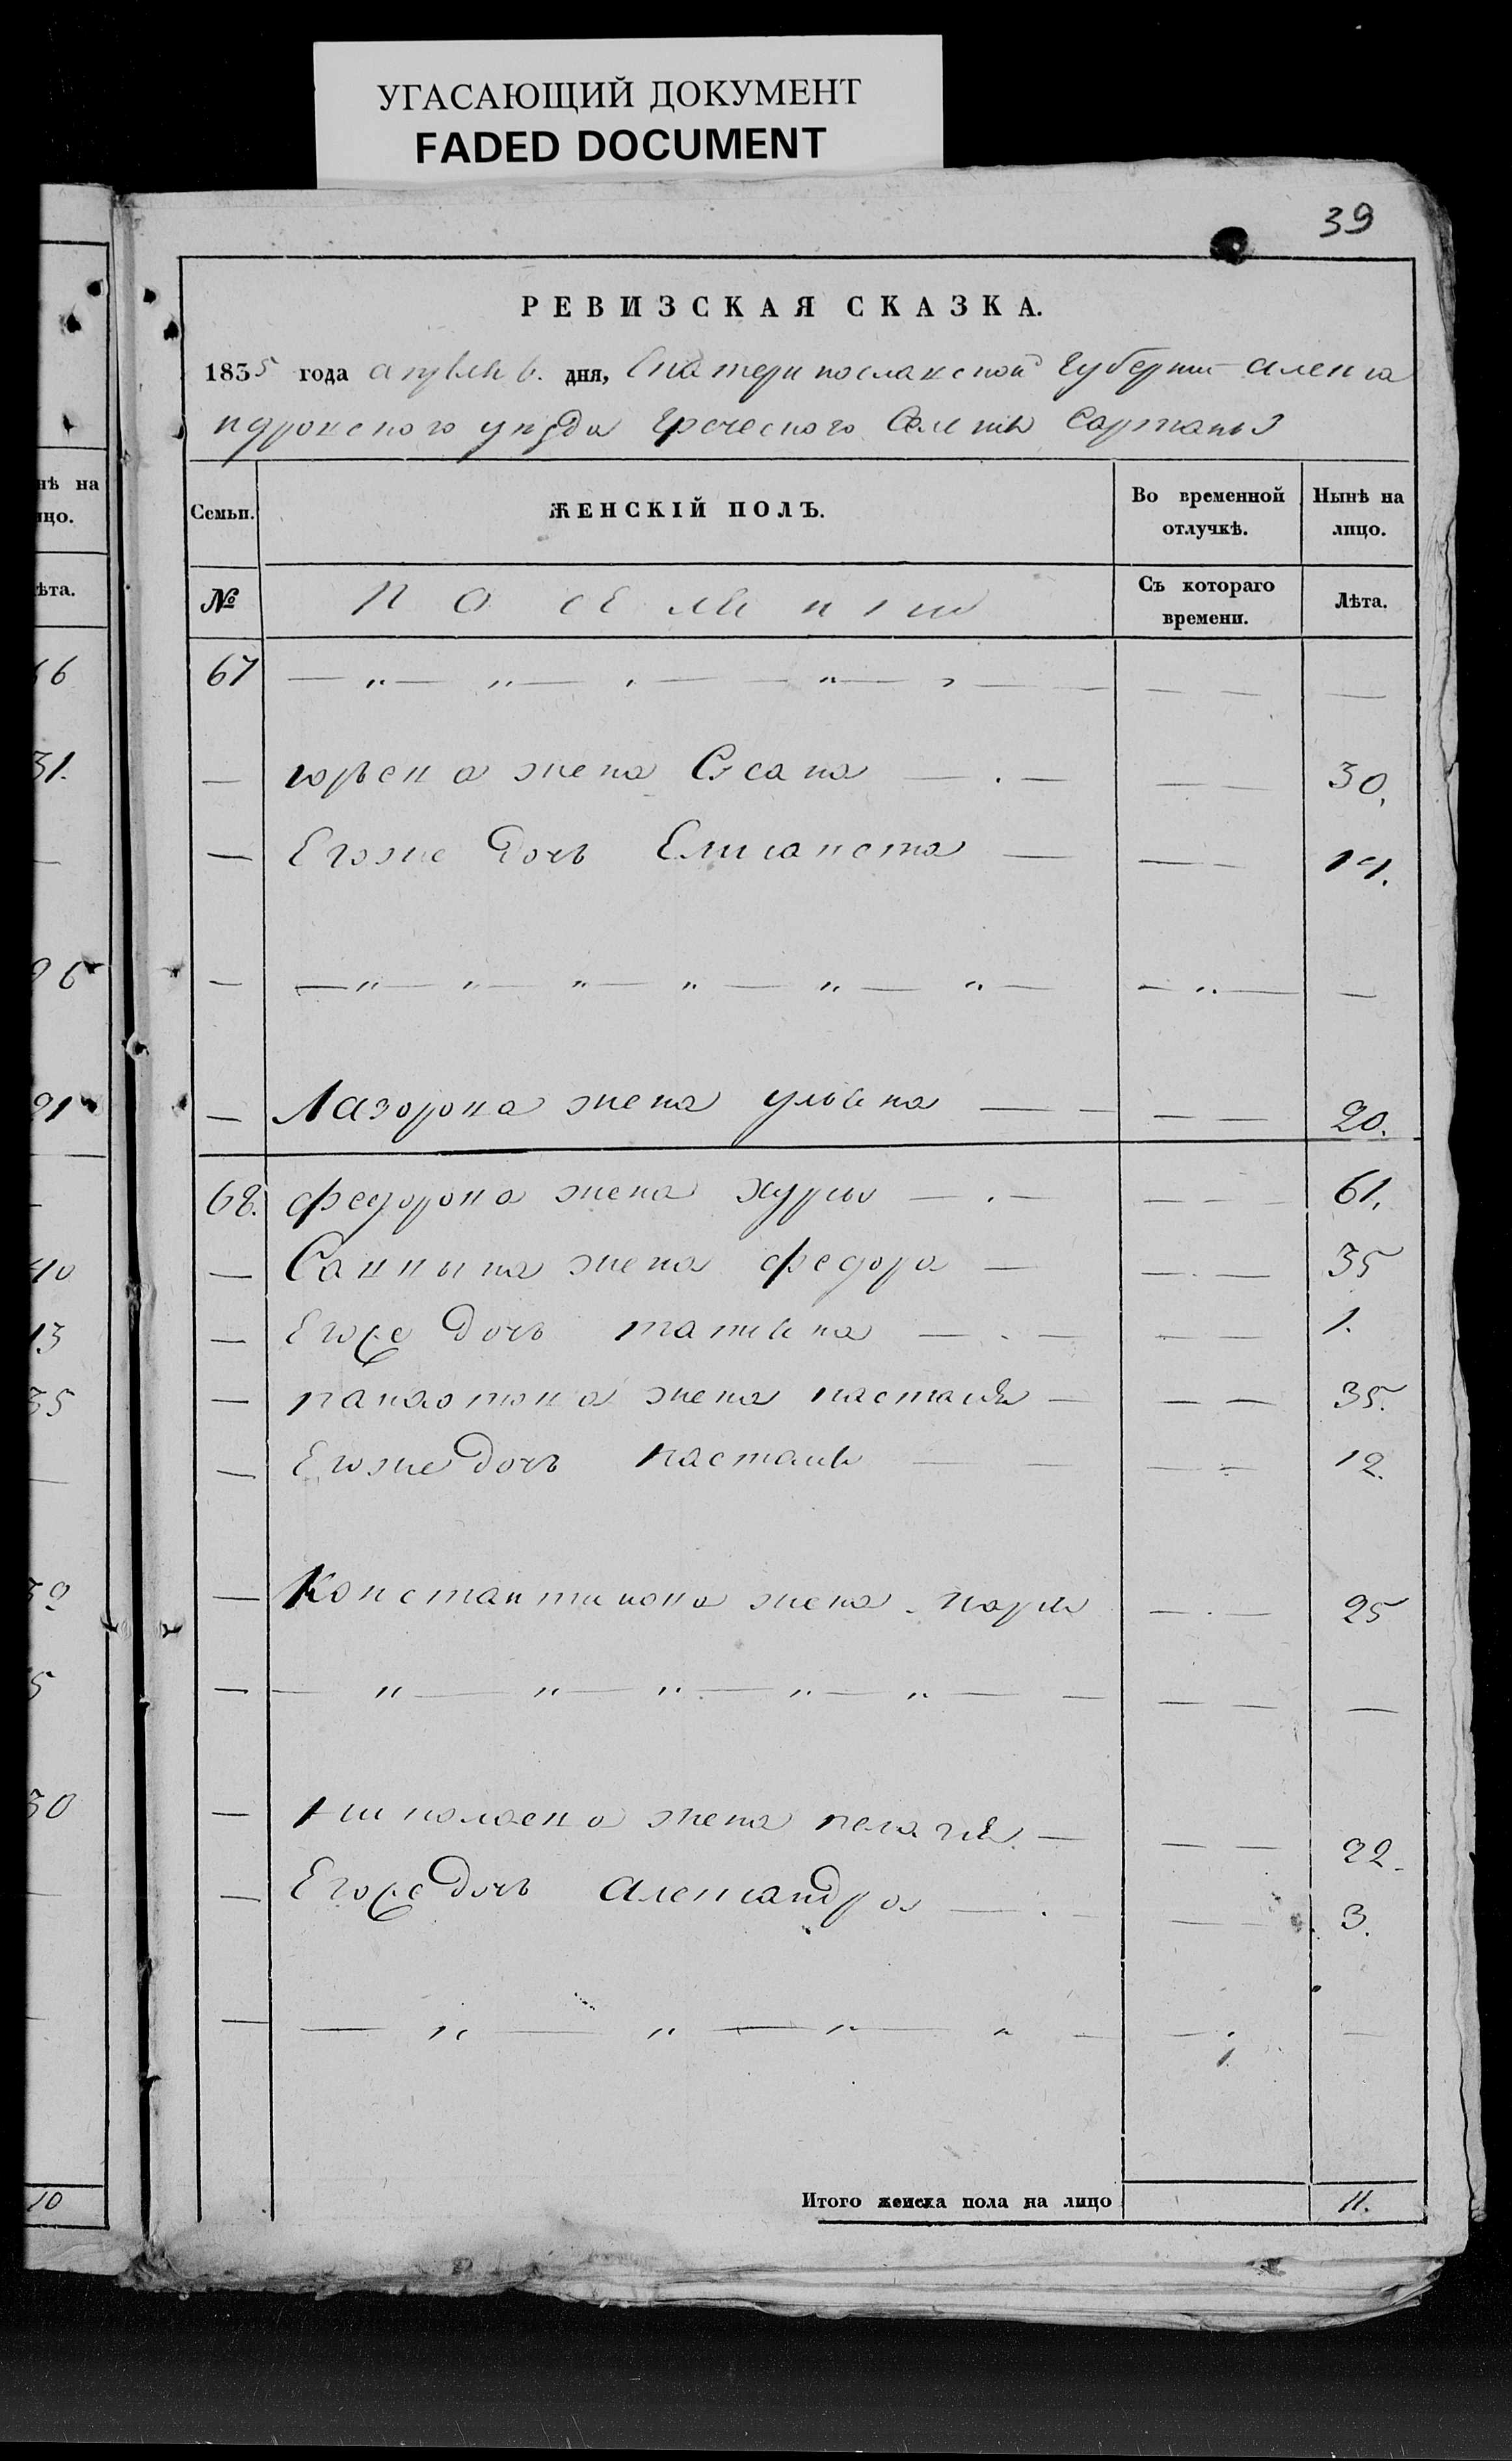 УГАСАЮЩИЙ ДОКУМЕНТ
FADED DOCUMENT
39
РЕВИЗСКАЯ СКАЗКА.
1835 года апреля 6. дня, Екатеринославской Губернии алекса
ндровского уезда Греческого Селения Сартаны
Семьи. ЖЕНСКІЙ ПОЛЪ. Во временной отлучкѣ. Нынѣ на лицо.
№ Поселяни Съ котораго времени. Лѣта.
67 — " — " — " — " — — —
— юрьева жена — — 30.
— Егоже дочь Елисавета — — 14.
— — " — " — " — " — " — " — — " — —
— Лазорова жена ульяна — — 20.
68. федорова жена — — 61.
— Саввина жена федора — — 35
— Егоже дочь татьяна — — 1.
— панаотова жена настасія — — 35.
— Егоже дочь настасія — — 12.
— Константинова жена марія — — 25
— — " — " — " — " — " — — — —
— николаева жена пелагія — — 22.
— Егоже дочь александра — — 3.
— — " — " — " — " — — —
Итого женска пола на лицо 11.
нѣ на
ицо.
ѣта.
66
31.
26
21
40
13
35
39
5
30
10